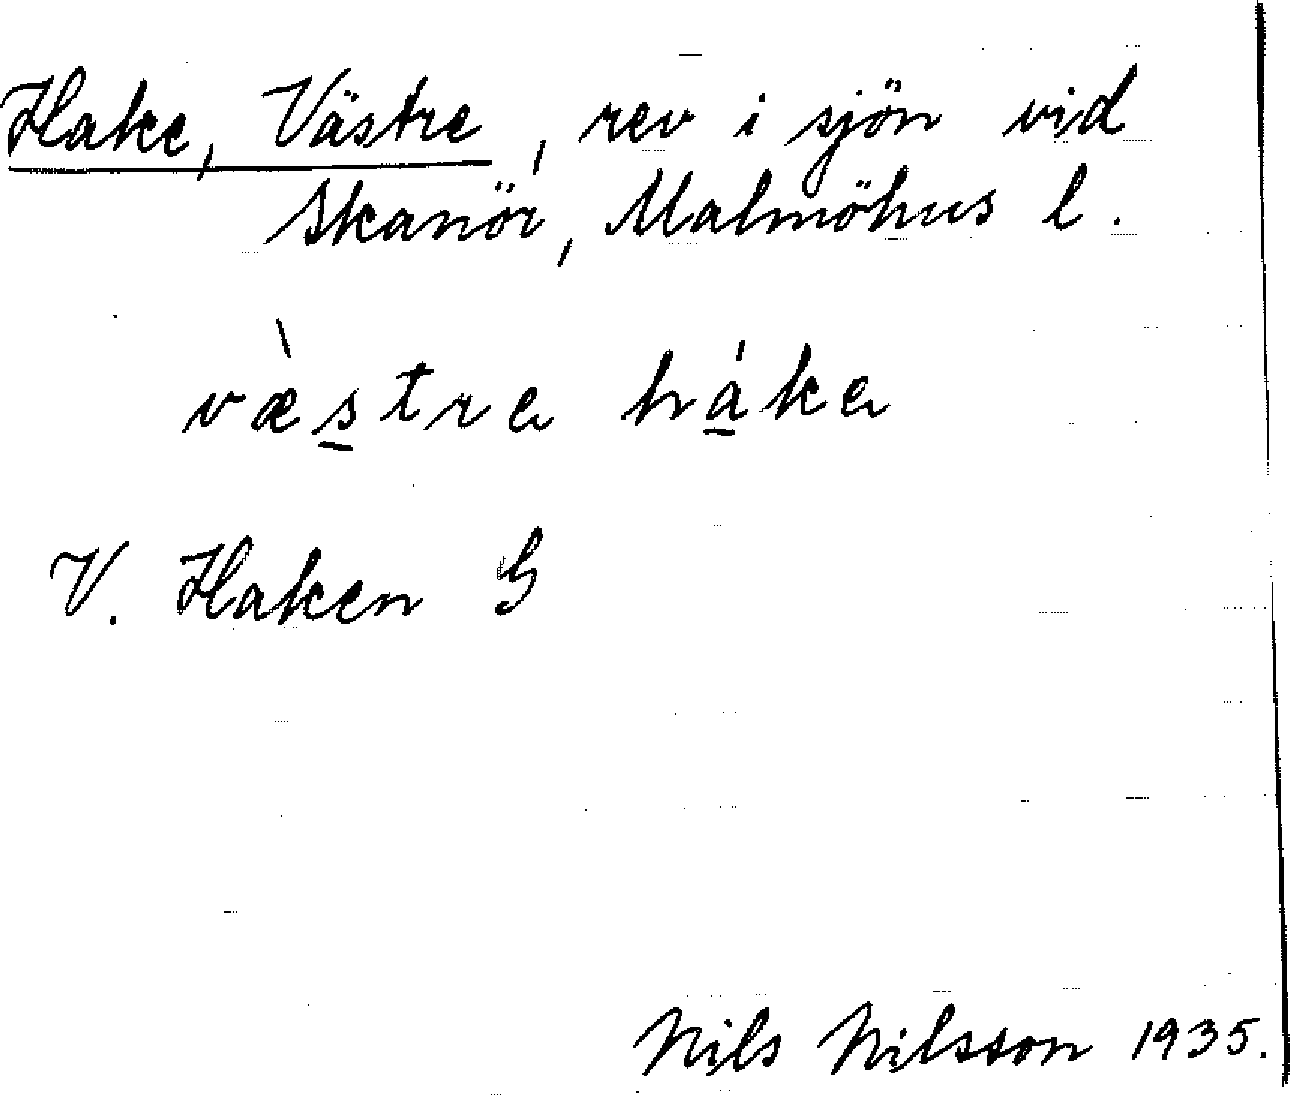 Hake, Västre, rev i sjön vid
Skanör, Malmöhus l.
væ̀s̲trə há̲kə
V. Haken G
Nils Nilsson 1935.